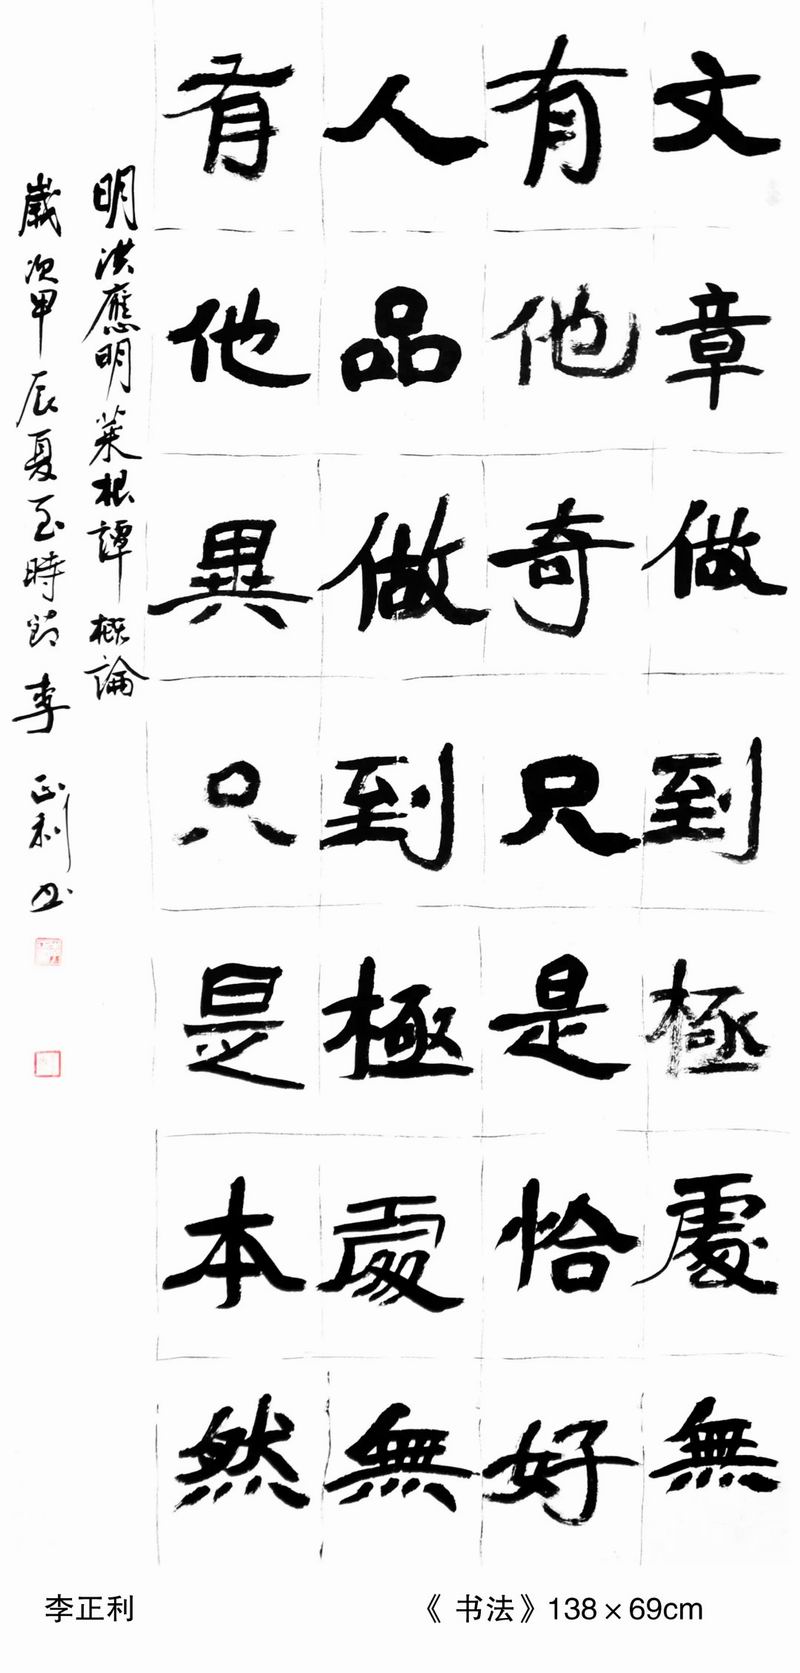 文章做到極處無
有他奇只是恰好
人品做到極處無
有他異只是本然
明洪應明菜根譚概論
歲次甲辰夏至時節李正利书
李正利
《书法》138×69cm